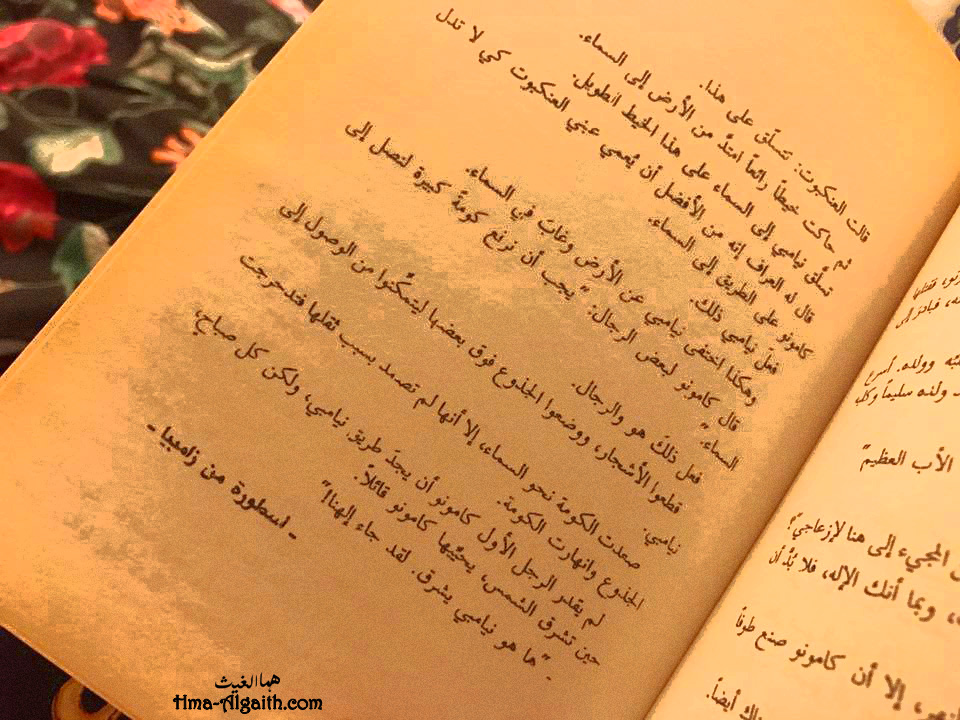 قالت العنكبوت: تتسلّق على هذا.
ثم حاكت خيطاً رائعاً امتدّ من الأرض إلى السماء.
تسلّق نيامبي إلى السماء على هذا الخيط الطويل.
قال له العراف إنه من الأفضل أن يُعمي عيني العنكبوت كي لا تدل
كامونو على الطريق إلى السماء.
فعل نيامبي ذلك.
وهكذا اختفى نيامبي عن الأرض وغابَ في السماء.
قال كامونو لبعض الرجال: "يجب أن نرفع كومةً كبيرة لنصل إلى
السماء."
فعل ذلك هو والرجال.
قطعوا الأشجار، ووضعوا الجذوع فوق بعضها ليتمكّنوا من الوصول إلى
نيامبي.
صعدت الكومة نحو السماء، إلا أنها لم تصمد بسبب ثقلها فتدحرجت
الجذوع وانهارت الكومة.
لم يقدر الرجل الأول كامونو أن يجدَ طريق نيامبي، ولكن كل صباح،
حين تشرق الشمس، يحيّيها كامونو قائلاً:
"ها هو نيامبي يشرق. لقد جاء إلهنا!"
- أسطورة من زامبيا -
فبادر إلى
وولده. أسرع
ولده سليماً وكلب
الأب العظيم"
المجيء إلى هنا لإزعاجي؟
، وبما أنك الإله، فلا بُدَّ أن
، إلا أن كامونو صنع طوفاً
أيضاً.
هما الغيث
Hma-Algaith.com